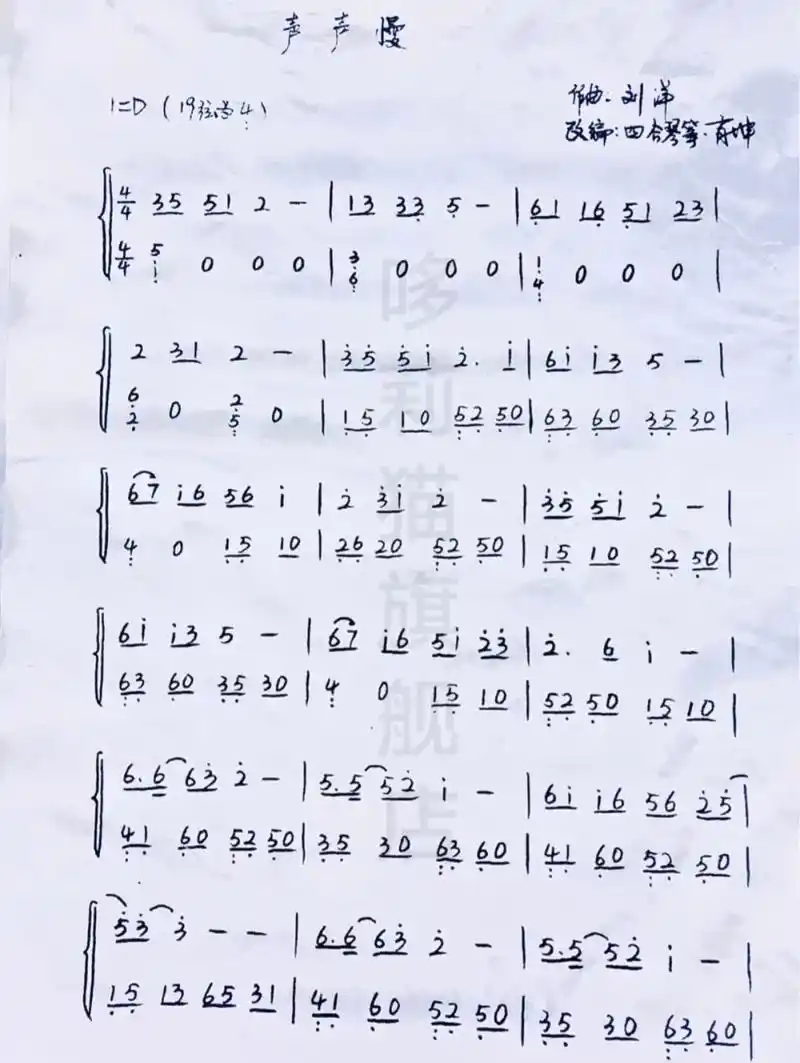 声声慢
1=D (19弦为4)
作曲:刘洋
改编:四合琴筝·育坤
4/4 35 51 2 - | 13 33 5 - | 61 16 51 23 |
4/4 5 1 0 0 0 | 3 6 0 0 0 | 1 4 0 0 0 |
2 31 2 - | 35 51 2. 1 | 61 13 5 - |
6 2 0 2 5 0 | 15 10 52 50 | 63 60 35 30 |
67 16 56 1 | 2 31 2 - | 35 51 2 - |
4 0 15 10 | 26 20 52 50 | 15 10 52 50 |
61 13 5 - | 67 16 51 23 | 2. 6 1 - |
63 60 35 30 | 4 0 15 10 | 52 50 15 10 |
6.6 63 2 - | 5.5 52 1 - | 61 16 56 25 |
41 60 52 50 | 35 30 63 60 | 41 60 52 50 |
53 3 - - | 6.6 63 2 - | 5.5 52 1 - |
15 13 65 31 | 41 60 52 50 | 35 30 63 60 |
哆莉猫旗舰店